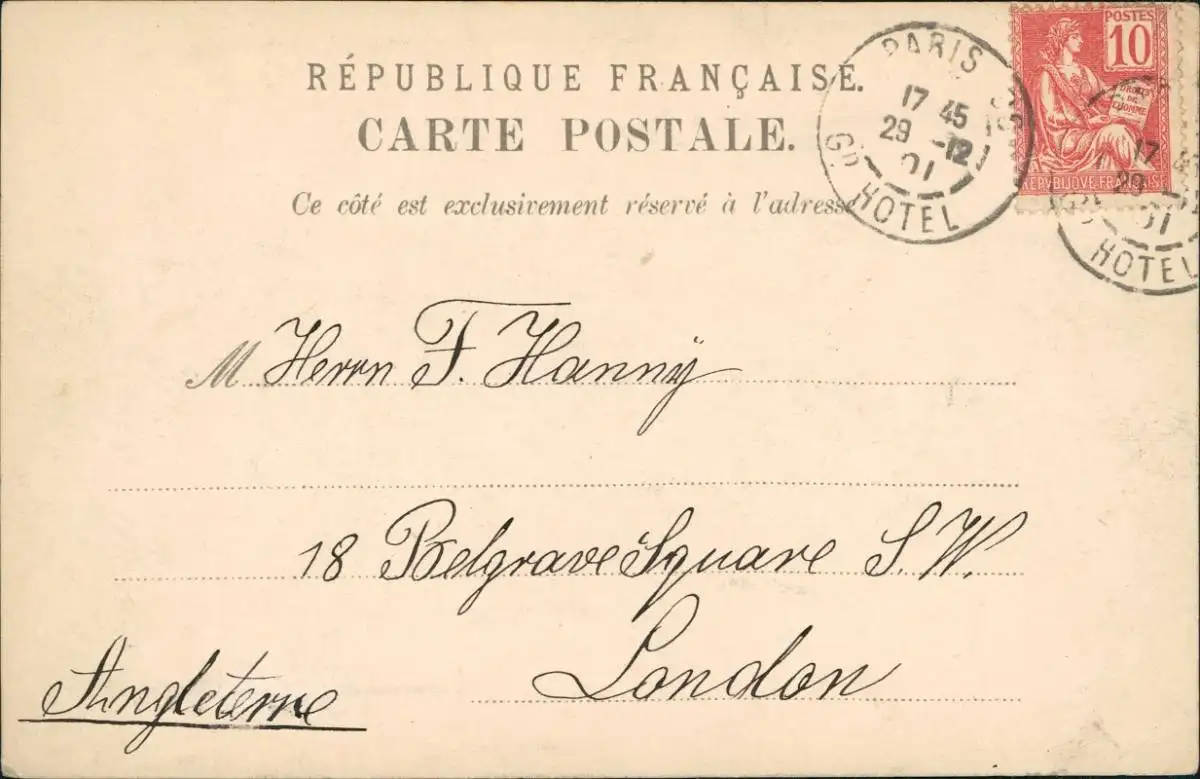 RÉPUBLIQUE FRANÇAISE.
CARTE POSTALE.
Ce côté est exclusivement réservé à l'adresse
PARIS
17 45
29 -12
01
GD HOTEL
POSTES
10
DROITS
DE
L'HOMME
REPUBLIQUE FRANÇAISE
17
29
01
HOTEL
M Herrn F. Hannÿ
18 Belgrave Square S.W.
London
Angleterre